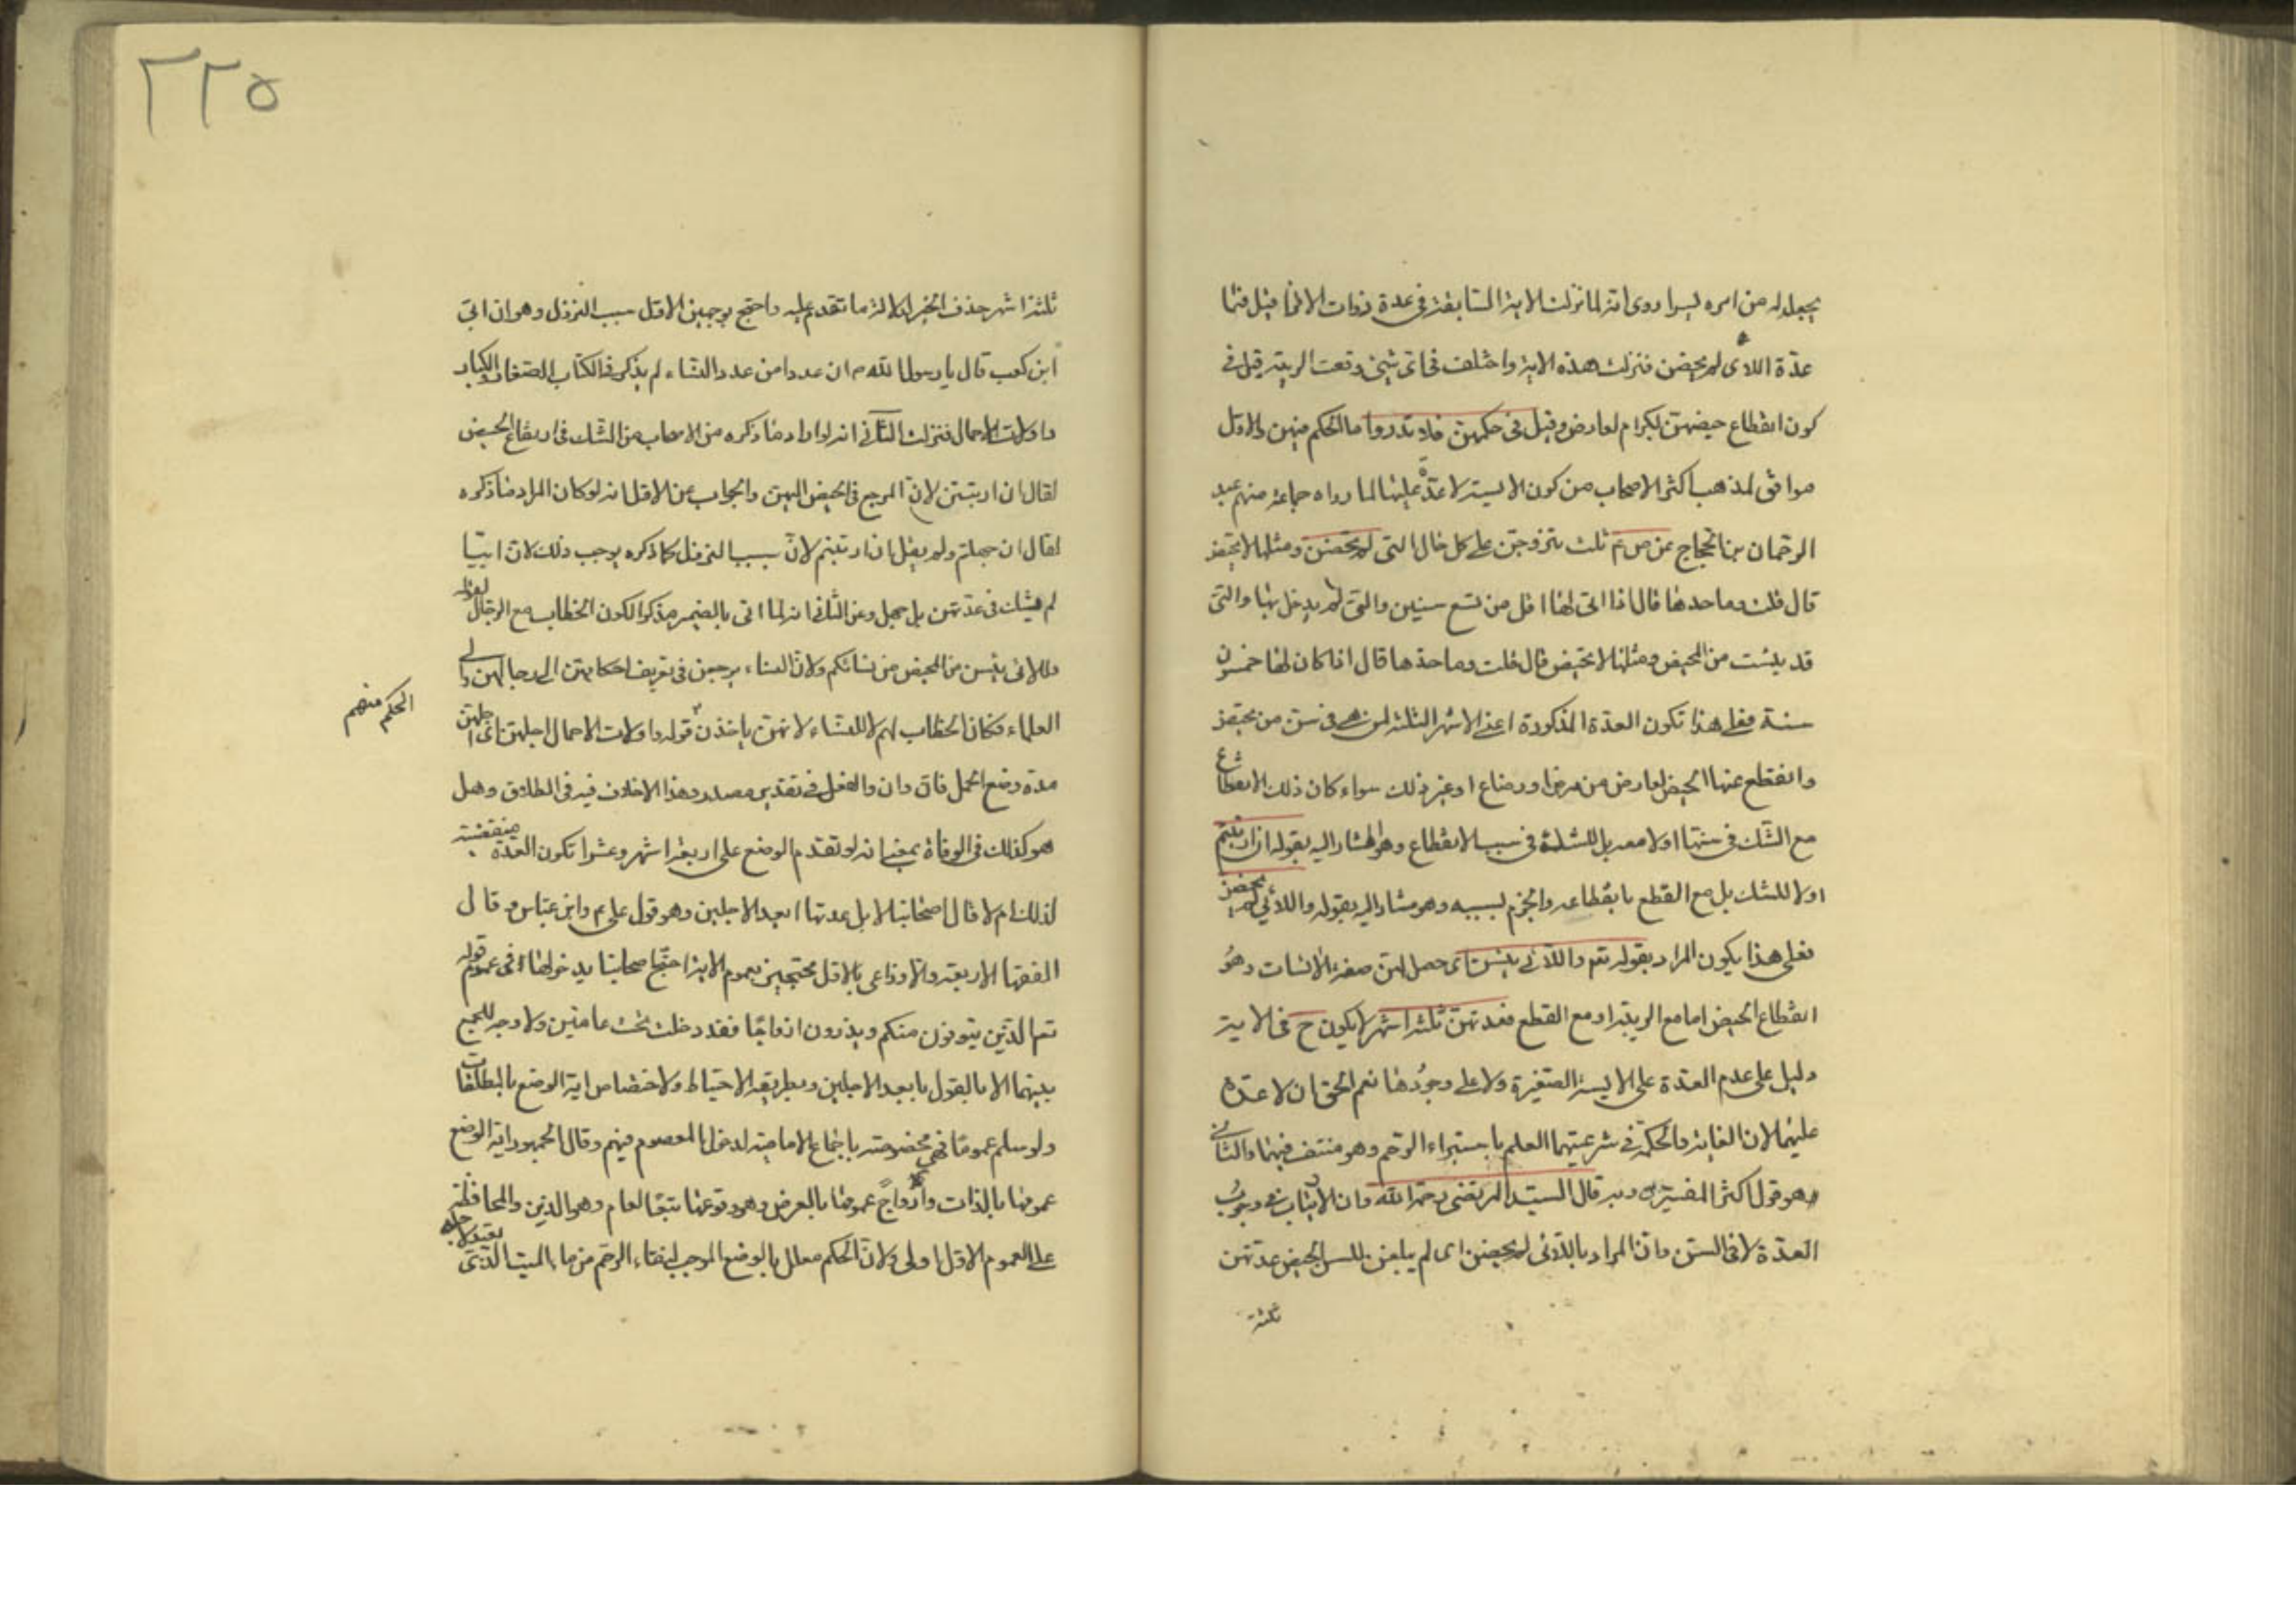 يجعل له من امره يسرا روى انه لما نزلت الاية السابقة في عدة ذوات الاقراء قيل فما
عدّة اللائى لم يحضن فنزلت هذه الاية واختلف فى اى شىء وقعت الريبة قيل فى
كون انقطاع حيضهن لكبر ام لعارض وقيل فى حكمهن فلا تدروا ما الحكم فيهن والاول
موافق لمذهب اكثر الاصحاب من كون الايسة لا عدّة عليها لما رواه جماعة منهم عبد
الرحمان بن الحجاج عن ص ع ثلث يتزوجن على كل حال التى لم تحضن ومثلها لا تحيض
قال قلت وما حدها قال اذا اتى لها اقل من تسع سنين والتى لم يدخل بها والتى
قد يئست من المحيض ومثلها لا تحيض قال قلت وما حدها قال اذا كان لها خمسون
سنة فعلى هذا تكون العدة المذكورة اعنى الاشهر الثلثة لمن هى فى سن من تحيض
وانقطع عنها الحيض لعارض من مرض او رضاع او غير ذلك سواء كان ذلك الانقطاع
مع الشك فى سنها اولا معه بل للشك فى سبب الانقطاع وهو المشار اليه بقوله ان ارتبتم
اولا للشك بل مع القطع بانقطاعه والجزم بسببه وهو مشار اليه بقوله واللائى لم يحضن
فعلى هذا يكون المراد بقوله تعم واللائى يئسن اى حصل لهن صفة الائسات وهو
انقطاع الحيض اما مع الريبة او مع القطع فعدتهن ثلثة اشهر لا يكون ح فى الاية
دليل على عدم العدة على الايسة الصغيرة ولا على وجودها نعم الحق ان لا عدة
عليهما لان الغاية والحكمة فى شرعيتهما العلم باستبراء الرحم وهو منتف فيهما والثانى
هو قول اكثر المفسرين وبه قال السيد المرتضى رحمه الله وان الارتياب فى وجوب
العدة لا فى السن وان المراد باللائى لم يحضن اى لم يبلغن للسن الحيض عدتهن
ثلثة
٢٢٥
ثلثة اشهر حذف الخبر لدلالة ما تقدم عليه واحتج بوجهين الاول سبب النزول وهو ان ابى
ابن كعب قال يا رسول الله ص ان عددا من عدد النساء لم يذكر فى الكتاب الصغار والكبار
واولات الاحمال فنزلت الثانى انه لو اراد ما ذكره من الاصحاب من الشك فى ارتفاع الحيض
لقال ان ارتبتن لان المرجع فى الحيض اليهن والجواب عن الاول انه لو كان المراد ما ذكره
لقال ان جهلتم ولم يقل ان ارتبتم لان سبب النزول كما ذكره يوجب ذلك لان ابيّا
لم يشك فى عدتهن بل جهل وعن الثانى انه لما اتى بالضمير مذكرا لكون الخطاب مع الرجال لقوله
واللائى يئسن من المحيض من نسائكم ولان النساء يرجعن فى تعريف احكامهن الى رجالهن والى
العلماء فكان الخطاب لهم لا للنساء لانهن ياخذن قوله واولات الاحمال اجلهن اى اجلهن
الحكم منهم
مدة وضع الحمل فان وان والفعل فى تقدير مصدر وهذا لا خلاف فيه فى الطلاق وهل
هو كذلك فى الوفاة بمعنى انه لو تقدم الوضع على اربعة اشهر وعشرا تكون العدة منقضية
لذلك ام لا قال اصحابنا لا بل عدتها ابعد الاجلين وهو قول على ع وابن عباس وقال
الفقهاء الاربعة والاوزاعى بالاول محتجين بعموم الاية احتج اصحابنا بدخولها فى عموم قوله
تعم الذين يتوفون منكم ويذرون ازواجًا فقد دخلت تحت عامين ولا وجه للجمع
بينهما الا بالقول بابعد الاجلين وبطريقة الاحتياط ولاختصاص اية الوضع بالمطلقات
ولو سلم عمومًا فهى مخصوصة باجماع الامامية لدخول المعصوم فيهم وقال الجمهور اية الوضع
عمومها بالذات وازواجًا عمومها بالعرض وهو وقوعها تبعًا لعام وهو الذين والمحافظة
على العموم الاول اولى ولان الحكم معلل بالوضع الموجب لنقاء الرحم من ماء الميت الذى